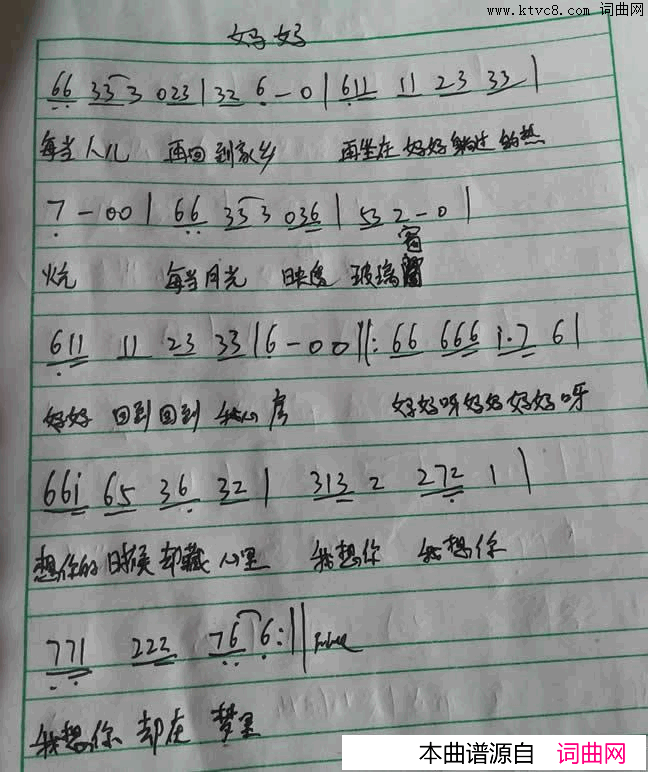 www.ktvc8.com 词曲网
好好
66 33 3 023 | 32 6 - 0 | 611 11 23 33 |
每当人儿 再回到家乡 再坐在 好好躺过的热
7 - 00 | 66 33 3 036 | 53 2 - 0 |
炕 每当月光 映透 玻璃窗
611 11 23 33 | 6 - 00 ||: 66 666 i·7 6 |
好好 回到回到 我心房 好好呀好好好好呀
66i 65 36 32 | 313 2 272 1 |
想你的时候却藏心里 我想你 我想你
771 222 76 6 :||
我想你 却在 梦里
本曲谱源自 词曲网